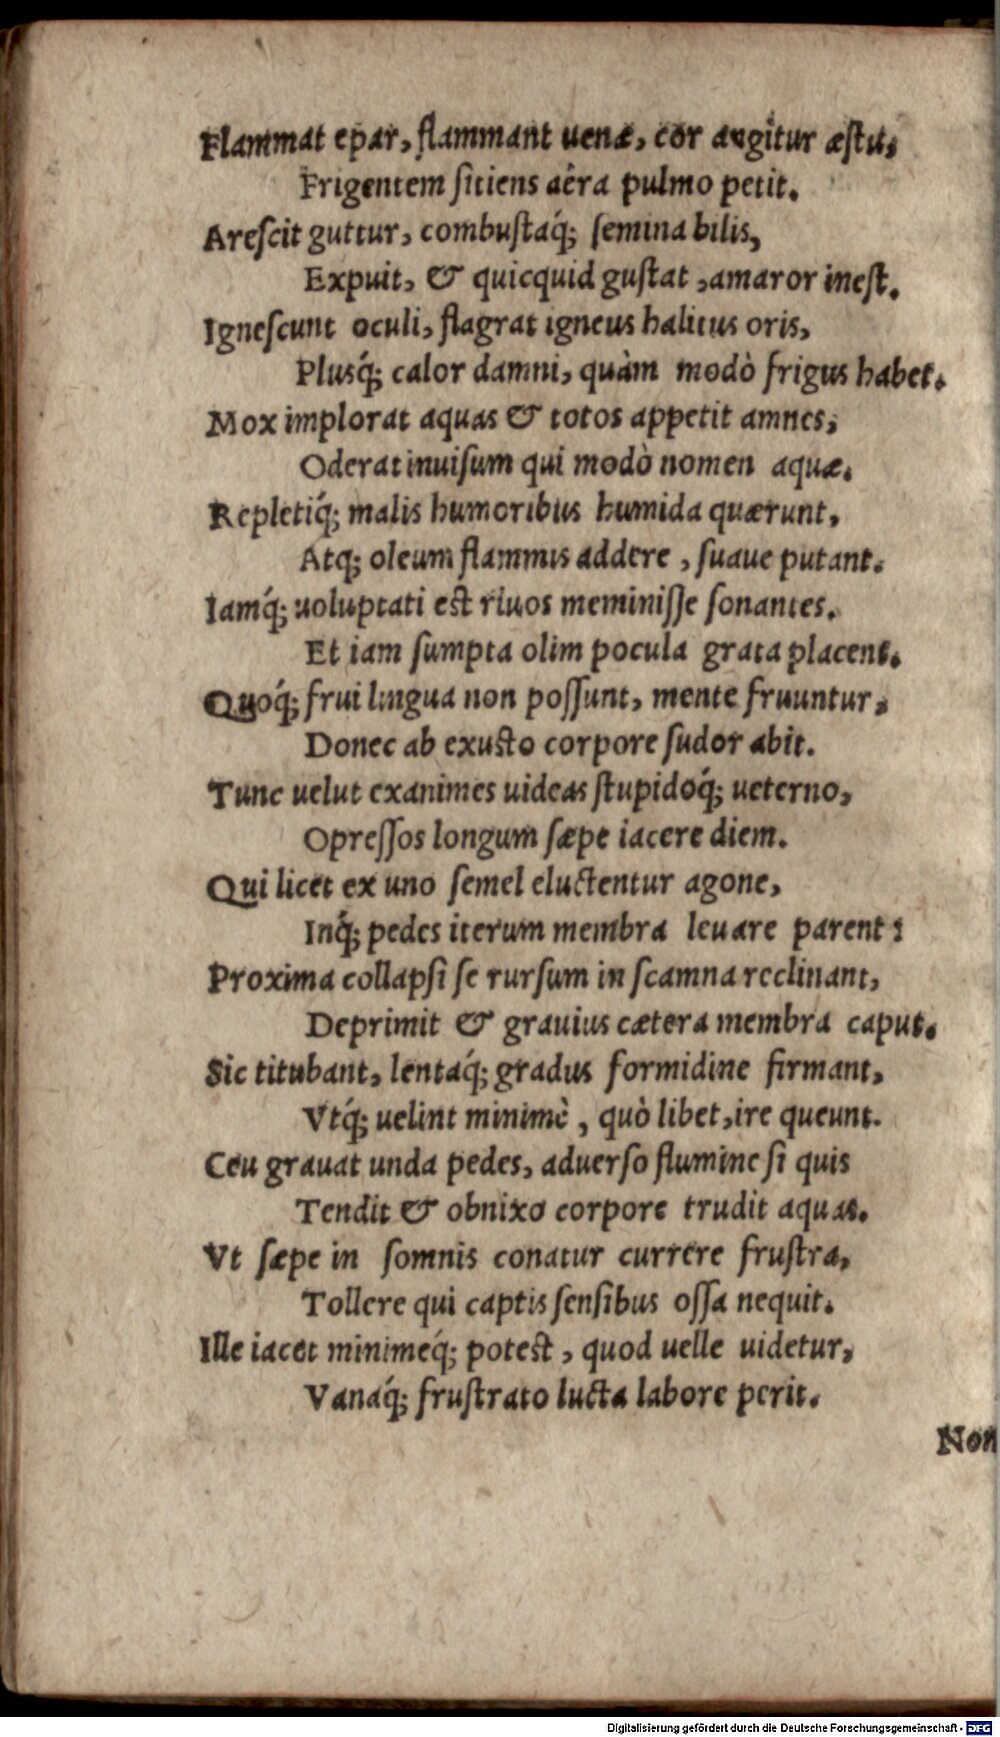 Flammat epar, flammant uenæ, cor augitur æstu,
Frigentem sitiens aëra pulmo petit.
Arescit guttur, combustaq́; semina bilis,
Expuit, & quicquid gustat, amaror inest.
Ignescunt oculi, flagrat igneus halitus oris,
Plusq́; calor damni, quàm modò frigus habet.
Mox implorat aquas & totos appetit amnes,
Oderat inuisum qui modò nomen aquæ.
Repletiq́; malis humoribus humida quærunt,
Atq; oleum flammis addere, suaue putant.
Iamq́; uoluptati est riuos meminisse sonantes.
Et iam sumpta olim pocula grata placent.
Quoq́; frui lingua non possunt, mente fruuntur,
Donec ab exusto corpore sudor abit.
Tunc uelut exanimes uideas stupidoq́; ueterno,
Opressos longum sæpe iacere diem.
Qui licet ex uno semel eluctentur agone,
Inq́; pedes iterum membra leuare parent:
Proxima collapsi se rursum in scamna reclinant,
Deprimit & grauius cætera membra caput.
Sic titubant, lentaq́; gradus formidine firmant,
Vtq́; uelint minimè, quò libet, ire queunt.
Ceu grauat unda pedes, aduerso flumine si quis
Tendit & obnixo corpore trudit aquas.
Vt sæpe in somnis conatur currere frustra,
Tollere qui captis sensibus ossa nequit.
Ille iacet minimeq́; potest, quod uelle uidetur,
Vanaq́; frustrato lucta labore perit.
Non
Digitalisierung gefördert durch die Deutsche Forschungsgemeinschaft - DFG